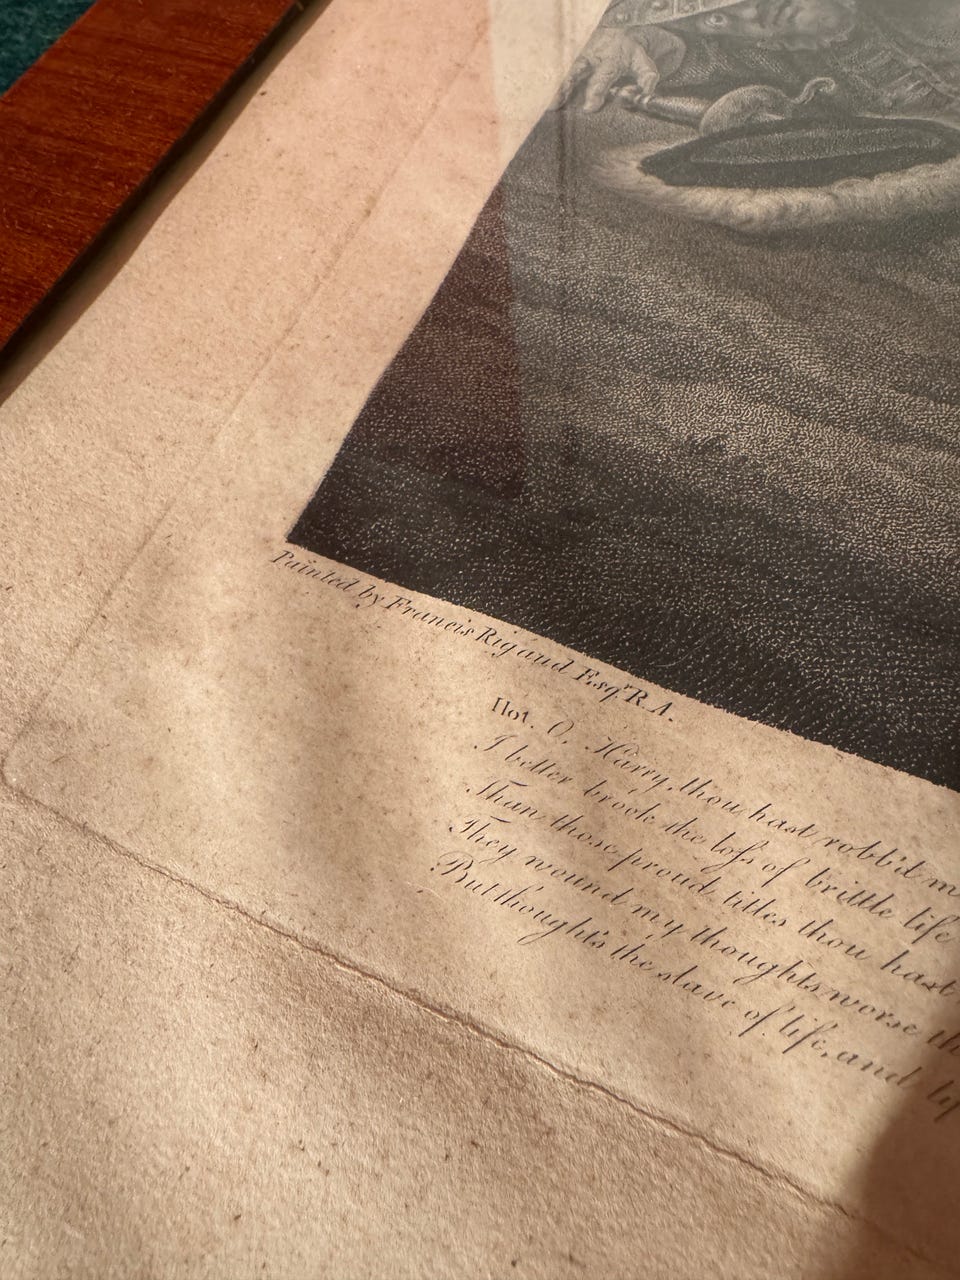 Painted by Francis Rigaud Esqr. R.A.
Hot. O, Harry, thou hast robb'd m
I better brook the loſs of brittle life
Than those proud titles thou hast
They wound my thoughts worse th
But thought's the slave of life, and lif